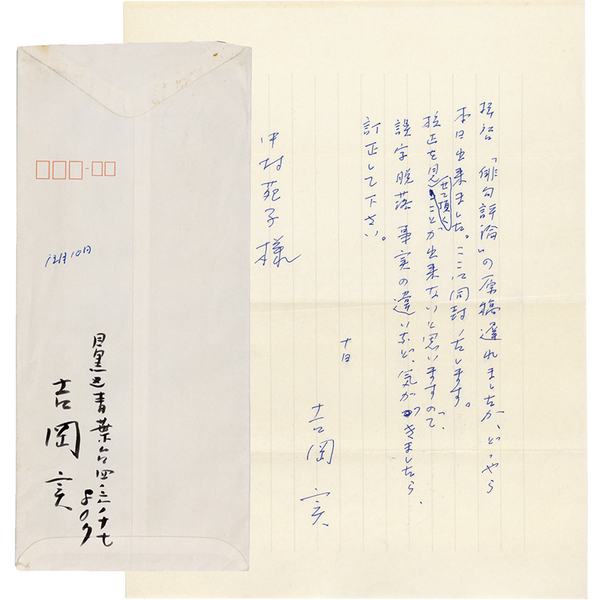 拝啓「俳句評論」の原稿遅れましたが、どうやら
本日出来ました。ここに同封します。
校正を見せて頂くことが出来ないと思いますので、
誤字脱落 事実の違いなど、気がつきましたら、
訂正して下さい。
十日
吉岡実
中村苑子様
12月10日
目黒区青葉台四ノ
吉岡実